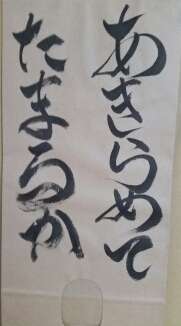 あきらめて
たまるか